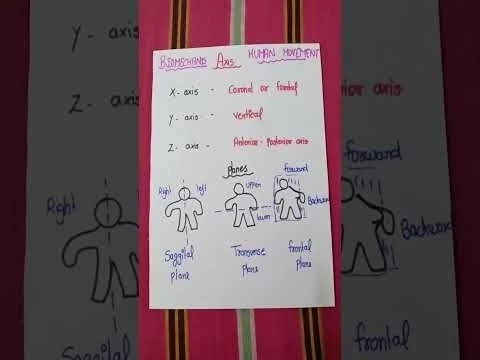 BIOMECHANIS Axis HUMAN MOVEMENT
X-axis - Coronal or frontal
Y-axis - vertical
Z-axis - Anterior-Posterior axis
planes
Right left
upper
lower
forward
Backward
Saggital plane
Transverse plane
frontal plane
Y- axis
Z- axis
rior axis
forward
Right
Backward
frontal